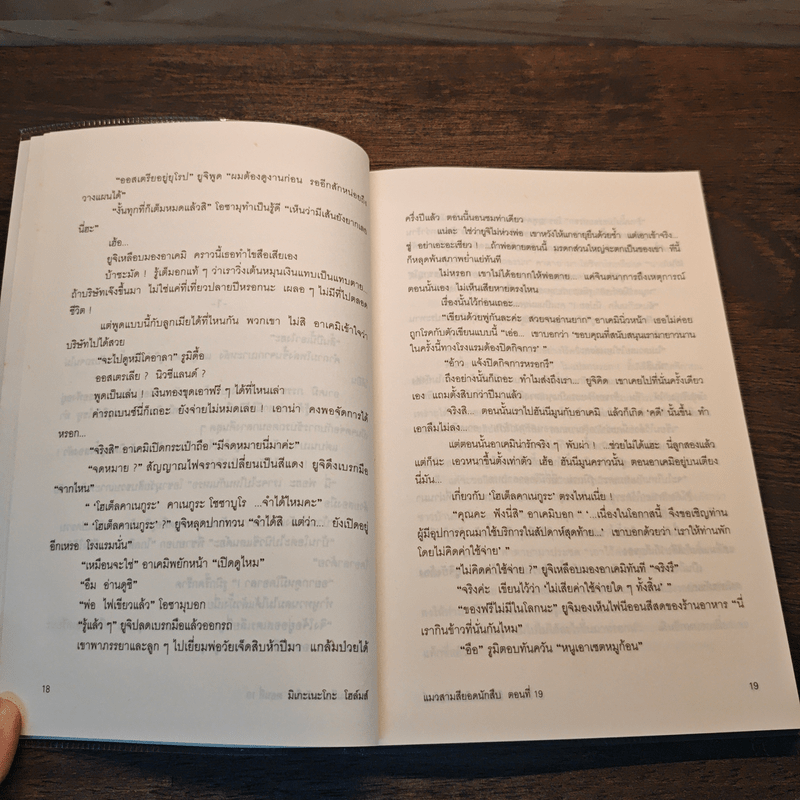 “ออสเตรียอยู่ยุโรป” ยูจิพูด “ผมต้องดูงานก่อน รออีกสักหน่อยถึง
วางแผนได้”
“งั้นทุกที่ก็เต็มหมดแล้วสิ” โอซามุทำเป็นรู้ดี “เห็นว่ามีเส้นยังยากเลย
นี่ฮะ”
เฮ้อ...
ยูจิเหลือบมองอาเคมิ คราวนี้เธอทำไขสือเสียเอง
บ้าชะมัด ! รู้เต็มอกแท้ ๆ ว่าเราวิ่งเต้นหมุนเงินแทบเป็นแทบตาย...
ถ้าบริษัทเจ๊งขึ้นมา ไม่ใช่แค่ที่เที่ยวปลายปีหรอกนะ เผลอ ๆ ไม่มีที่ไปตลอด
ชีวิต !
แต่พูดแบบนี้กับลูกเมียได้ที่ไหนกัน พวกเขา ไม่สิ อาเคมิเข้าใจว่า
บริษัทไปได้สวย
“จะไปดูหมีโคอาลา” รูมิดื้อ
ออสเตรเลีย ? นิวซีแลนด์ ?
พูดเป็นเล่น ! เงินทองขุดเอาฟรี ๆ ได้ที่ไหนเล่า
ค่ารถเบนซ์นี่ก็เถอะ ยังจ่ายไม่หมดเลย ! เอาน่า คงพอจัดการได้
หรอก...
“จริงสิ” อาเคมิเปิดกระเป๋าถือ “มีจดหมายนี่มาค่ะ”
“จดหมาย ?” สัญญาณไฟจราจรเปลี่ยนเป็นสีแดง ยูจิดึงเบรกมือ
“จากไหน”
“ ‘โฮเต็ลคาเนกูระ’ คาเนกูระ โชซาบูโร ...จำได้ไหมคะ”
“ ‘โฮเต็ลคาเนกูระ’ ?” ยูจิหลุดปากทวน “จำได้สิ แต่ว่า... ยังเปิดอยู่
อีกเหรอ โรงแรมนั่น”
“เหมือนจะใช่” อาเคมิพยักหน้า “เปิดดูไหม”
“อืม อ่านดูซิ”
“พ่อ ไฟเขียวแล้ว” โอซามุบอก
“รู้แล้ว ๆ” ยูจิปลดเบรกมือแล้วออกรถ
เขาพาภรรยาและลูก ๆ ไปเยี่ยมพ่อวัยเจ็ดสิบห้าปีมา แกล้มป่วยได้
18
มิเกะเนะโกะ โฮล์มส์
ครึ่งปีแล้ว ตอนนี้นอนซมท่าเดียว
แน่ละ ใช่ว่ายูจิไม่ห่วงพ่อ เขาหวังให้แกอายุยืนด้วยซ้ำ แต่เอาเข้าจริง...
ชู่ อย่าเอะอะเชียว ! ถ้าพ่อตายตอนนี้ มรดกส่วนใหญ่จะตกเป็นของเขา ทีนี้
ก็หลุดพ้นสภาพย่ำแย่ทันที
ไม่หรอก เขาไม่ได้อยากให้พ่อตาย... แค่จินตนาการถึงเหตุการณ์
ตอนนั้นเอง ไม่เห็นเสียหายตรงไหน
เรื่องนั้นไว้ก่อนเถอะ...
“เขียนด้วยพู่กันละค่ะ สวยจนอ่านยาก” อาเคมินิ่วหน้า เธอไม่ค่อย
ถูกโรคกับตัวเขียนแบบนี้ “เอ่อ... เขาบอกว่า ‘ขอบคุณที่สนับสนุนเรามายาวนาน
ในครั้งนี้ทางโรงแรมต้องปิดกิจการ’ ”
“อ้าว แจ้งปิดกิจการหรอกรึ”
ถึงอย่างนั้นก็เถอะ ทำไมส่งถึงเรา... ยูจิคิด เขาเคยไปที่นั่นครั้งเดียว
เอง แถมตั้งสิบกว่าปีมาแล้ว
จริงสิ... ตอนนั้นเราไปฮันนีมูนกับอาเคมิ แล้วก็เกิด ‘คดี’ นั้นขึ้น ทำ
เอาลืมไม่ลง...
แต่ตอนนั้นอาเคมิน่ารักจริง ๆ พับผ่า ! ...ช่วยไม่ได้แฮะ นี่ลูกสองแล้ว
แต่ก็นะ เอวหนาขึ้นตั้งเท่าตัว เฮ้อ ฮันนีมูนคราวนั้น ตอนอาเคมิอยู่บนเตียง
นี่มัน...
เกี่ยวกับ ‘โฮเต็ลคาเนกูระ’ ตรงไหนเนี่ย !
“คุณคะ ฟังนี่สิ” อาเคมิบอก “ ‘...เนื่องในโอกาสนี้ จึงขอเชิญท่าน
ผู้มีอุปการะคุณมาใช้บริการในสัปดาห์สุดท้าย...’ เขาบอกด้วยว่า ‘เราให้ท่านพัก
โดยไม่คิดค่าใช้จ่าย’ ”
“ไม่คิดค่าใช้จ่าย ?” ยูจิเหลือบมองอาเคมิทันที “จริงรึ”
“จริงค่ะ เขียนไว้ว่า ‘ไม่เสียค่าใช้จ่ายใด ๆ ทั้งสิ้น’ ”
“ของฟรีไม่มีในโลกนะ” ยูจิมองเห็นไฟนีออนสีสดของร้านอาหาร “นี่
เรากินข้าวที่นั่นกันไหม”
“อือ” รูมิตอบทันควัน “หนูเอาเซตหมูก้อน”
แมวสามสียอดนักสืบ ตอนที่ 19
19